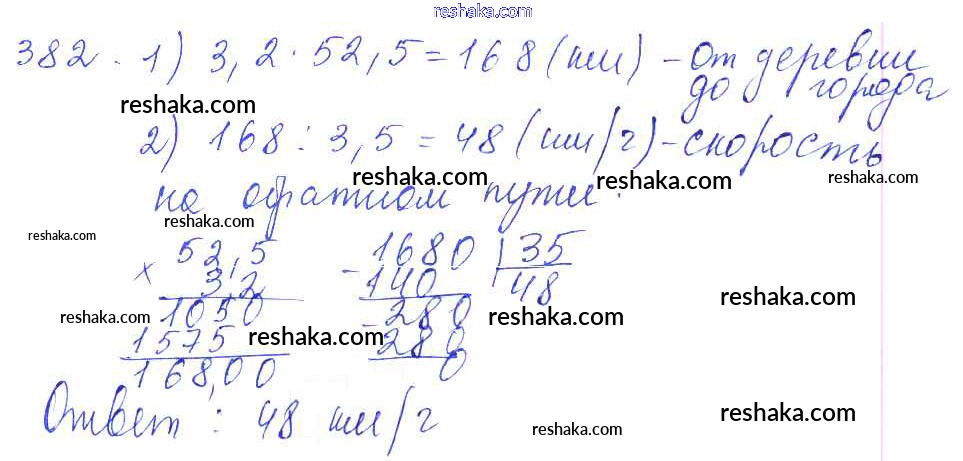 reshaka.com
382. 1) 3,2 · 52,5 = 168 (км) – От деревни
до города
reshaka.com
2) 168 : 3,5 = 48 (км/ч) – скорость
reshaka.com reshaka.com reshaka.com
на обратном пути.
reshaka.com reshaka.com
× 52,5 - 1680 | 35
3,2 140 48
reshaka.com
1050 - 280
reshaka.com reshaka.com reshaka.com
1575 280
168,00 0
Ответ: 48 км/ч
reshaka.com reshaka.com